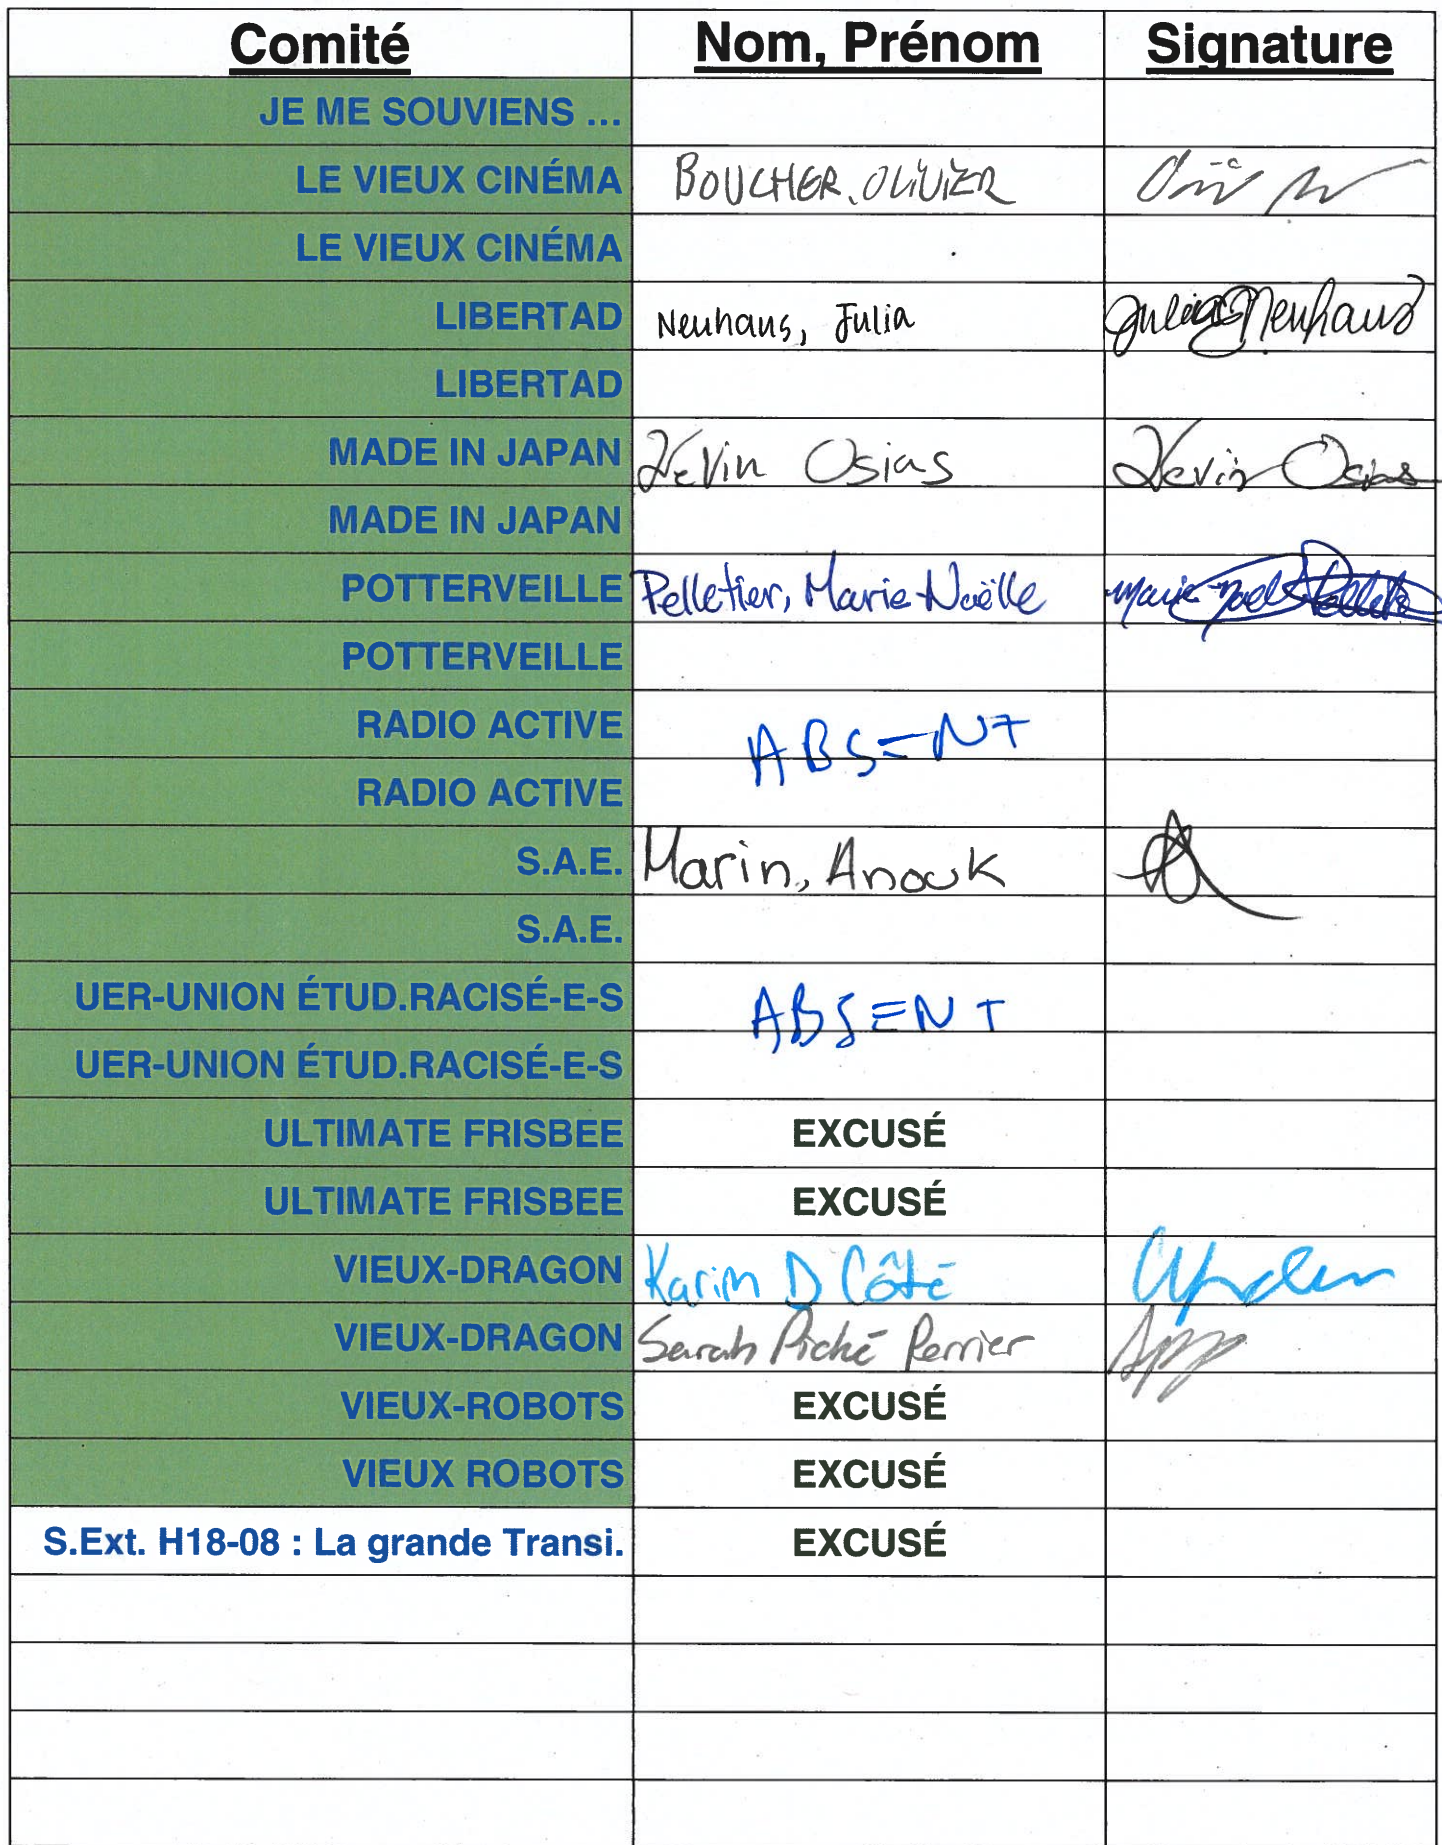 Comité Nom, Prénom Signature
JE ME SOUVIENS ...
LE VIEUX CINÉMA BOUCHER, OLIVIER
LE VIEUX CINÉMA
LIBERTAD Neuhaus, Julia Julia Neuhaus
LIBERTAD
MADE IN JAPAN Kevin Osias Kevin Osias
MADE IN JAPAN
POTTERVEILLE Pelletier, Marie-Noëlle Marie-Noel Pelletier
POTTERVEILLE
RADIO ACTIVE ABSENT
RADIO ACTIVE
S.A.E. Marin, Anouk
S.A.E.
UER-UNION ÉTUD.RACISÉ-E-S ABSENT
UER-UNION ÉTUD.RACISÉ-E-S
ULTIMATE FRISBEE EXCUSÉ
ULTIMATE FRISBEE EXCUSÉ
VIEUX-DRAGON Karim D Côté
VIEUX-DRAGON Sarah Piché Perrier
VIEUX-ROBOTS EXCUSÉ
VIEUX ROBOTS EXCUSÉ
S.Ext. H18-08 : La grande Transi. EXCUSÉ